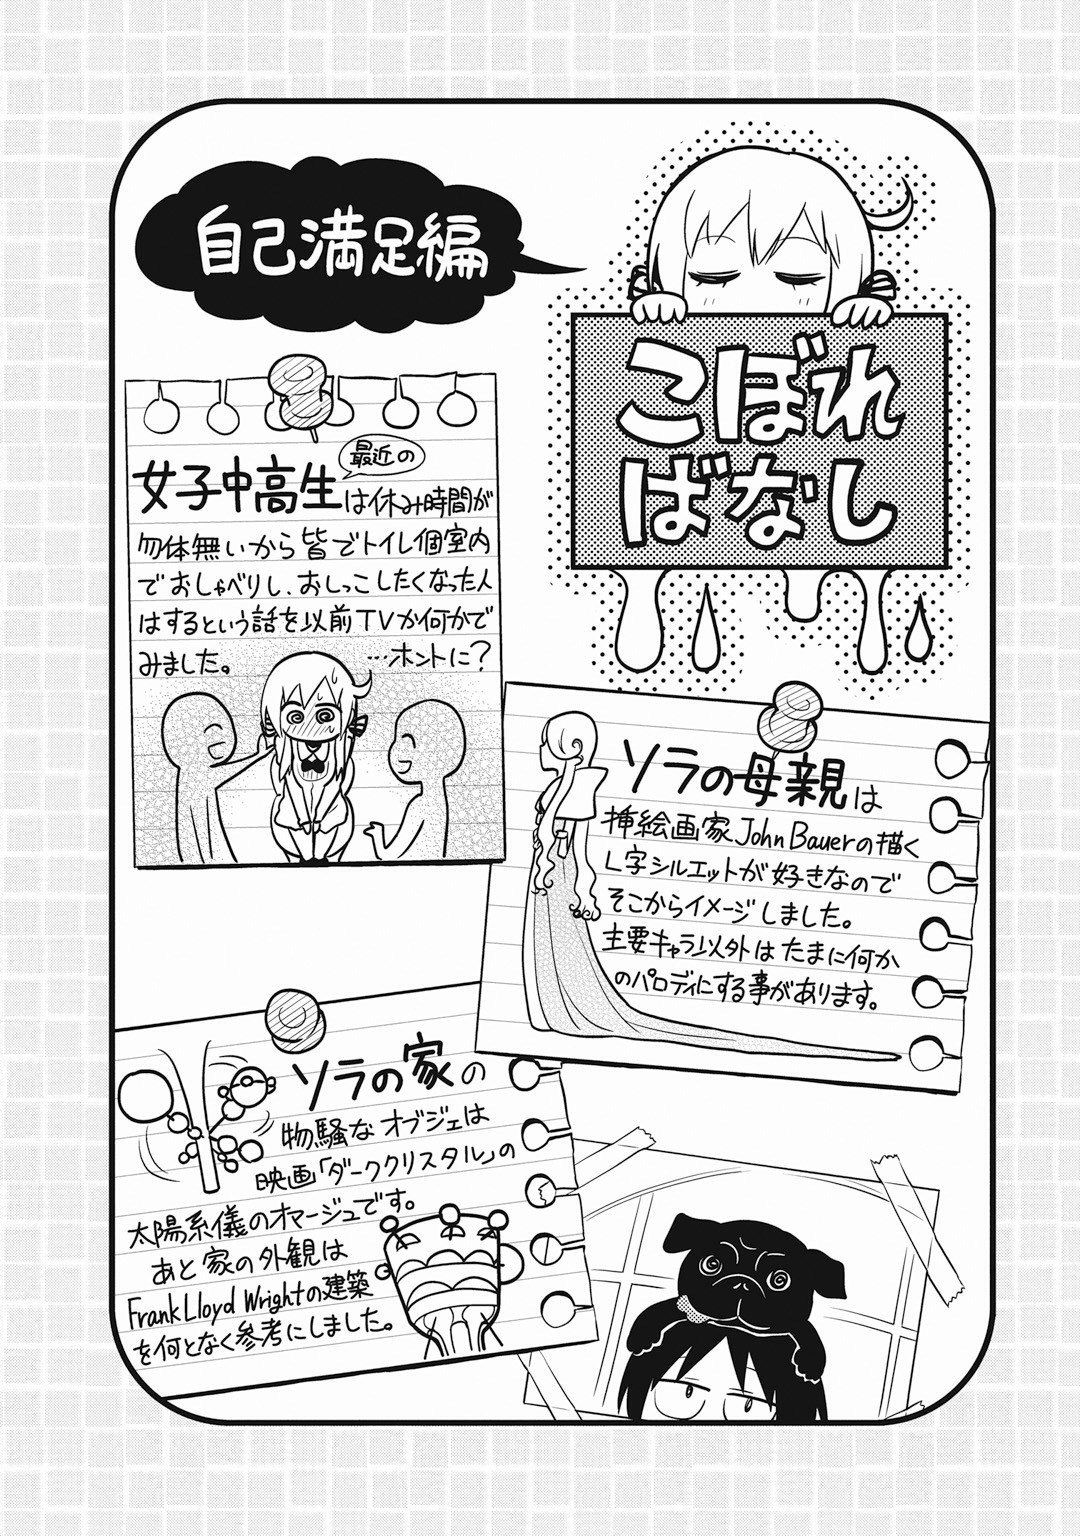 自己満足編
こぼれ
ばなし
最近の
女子中高生は休み時間が
勿体無いから皆でトイレ個室内
でおしゃべりし、おしっこしたくなった人
はするという話を以前TVか何かで
みました。 …ホントに?
ソラの母親は
挿絵画家John Bauerの描く
L字シルエットが好きなので
そこからイメージしました。
主要キャラ以外はたまに何か
のパロディにする事があります。
ソラの家の
物騒なオブジェは
映画「ダーククリスタル」の
太陽系儀のオマージュです。
あと家の外観は
Frank Lloyd Wrightの建築
を何となく参考にしました。